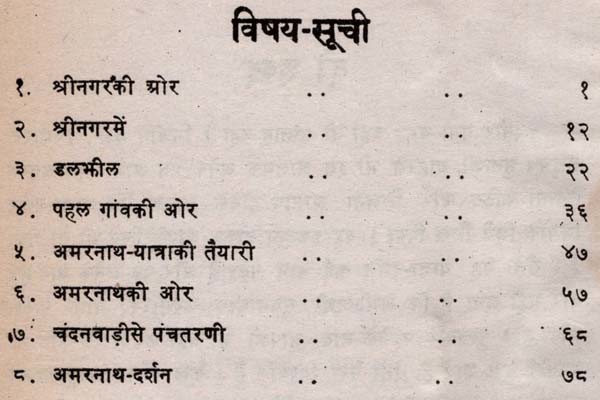 विषय-सूची
१. श्रीनगरकी ओर .. .. १
२. श्रीनगरमें .. .. १२
३. डलझील .. .. २२
४. पहल गांवकी ओर .. .. ३६
५. अमरनाथ-यात्राकी तैयारी .. .. ४७
६. अमरनाथकी ओर .. .. ५७
७. चंदनवाड़ीसे पंचतरणी .. .. ६८
८. अमरनाथ-दर्शन .. .. ७८